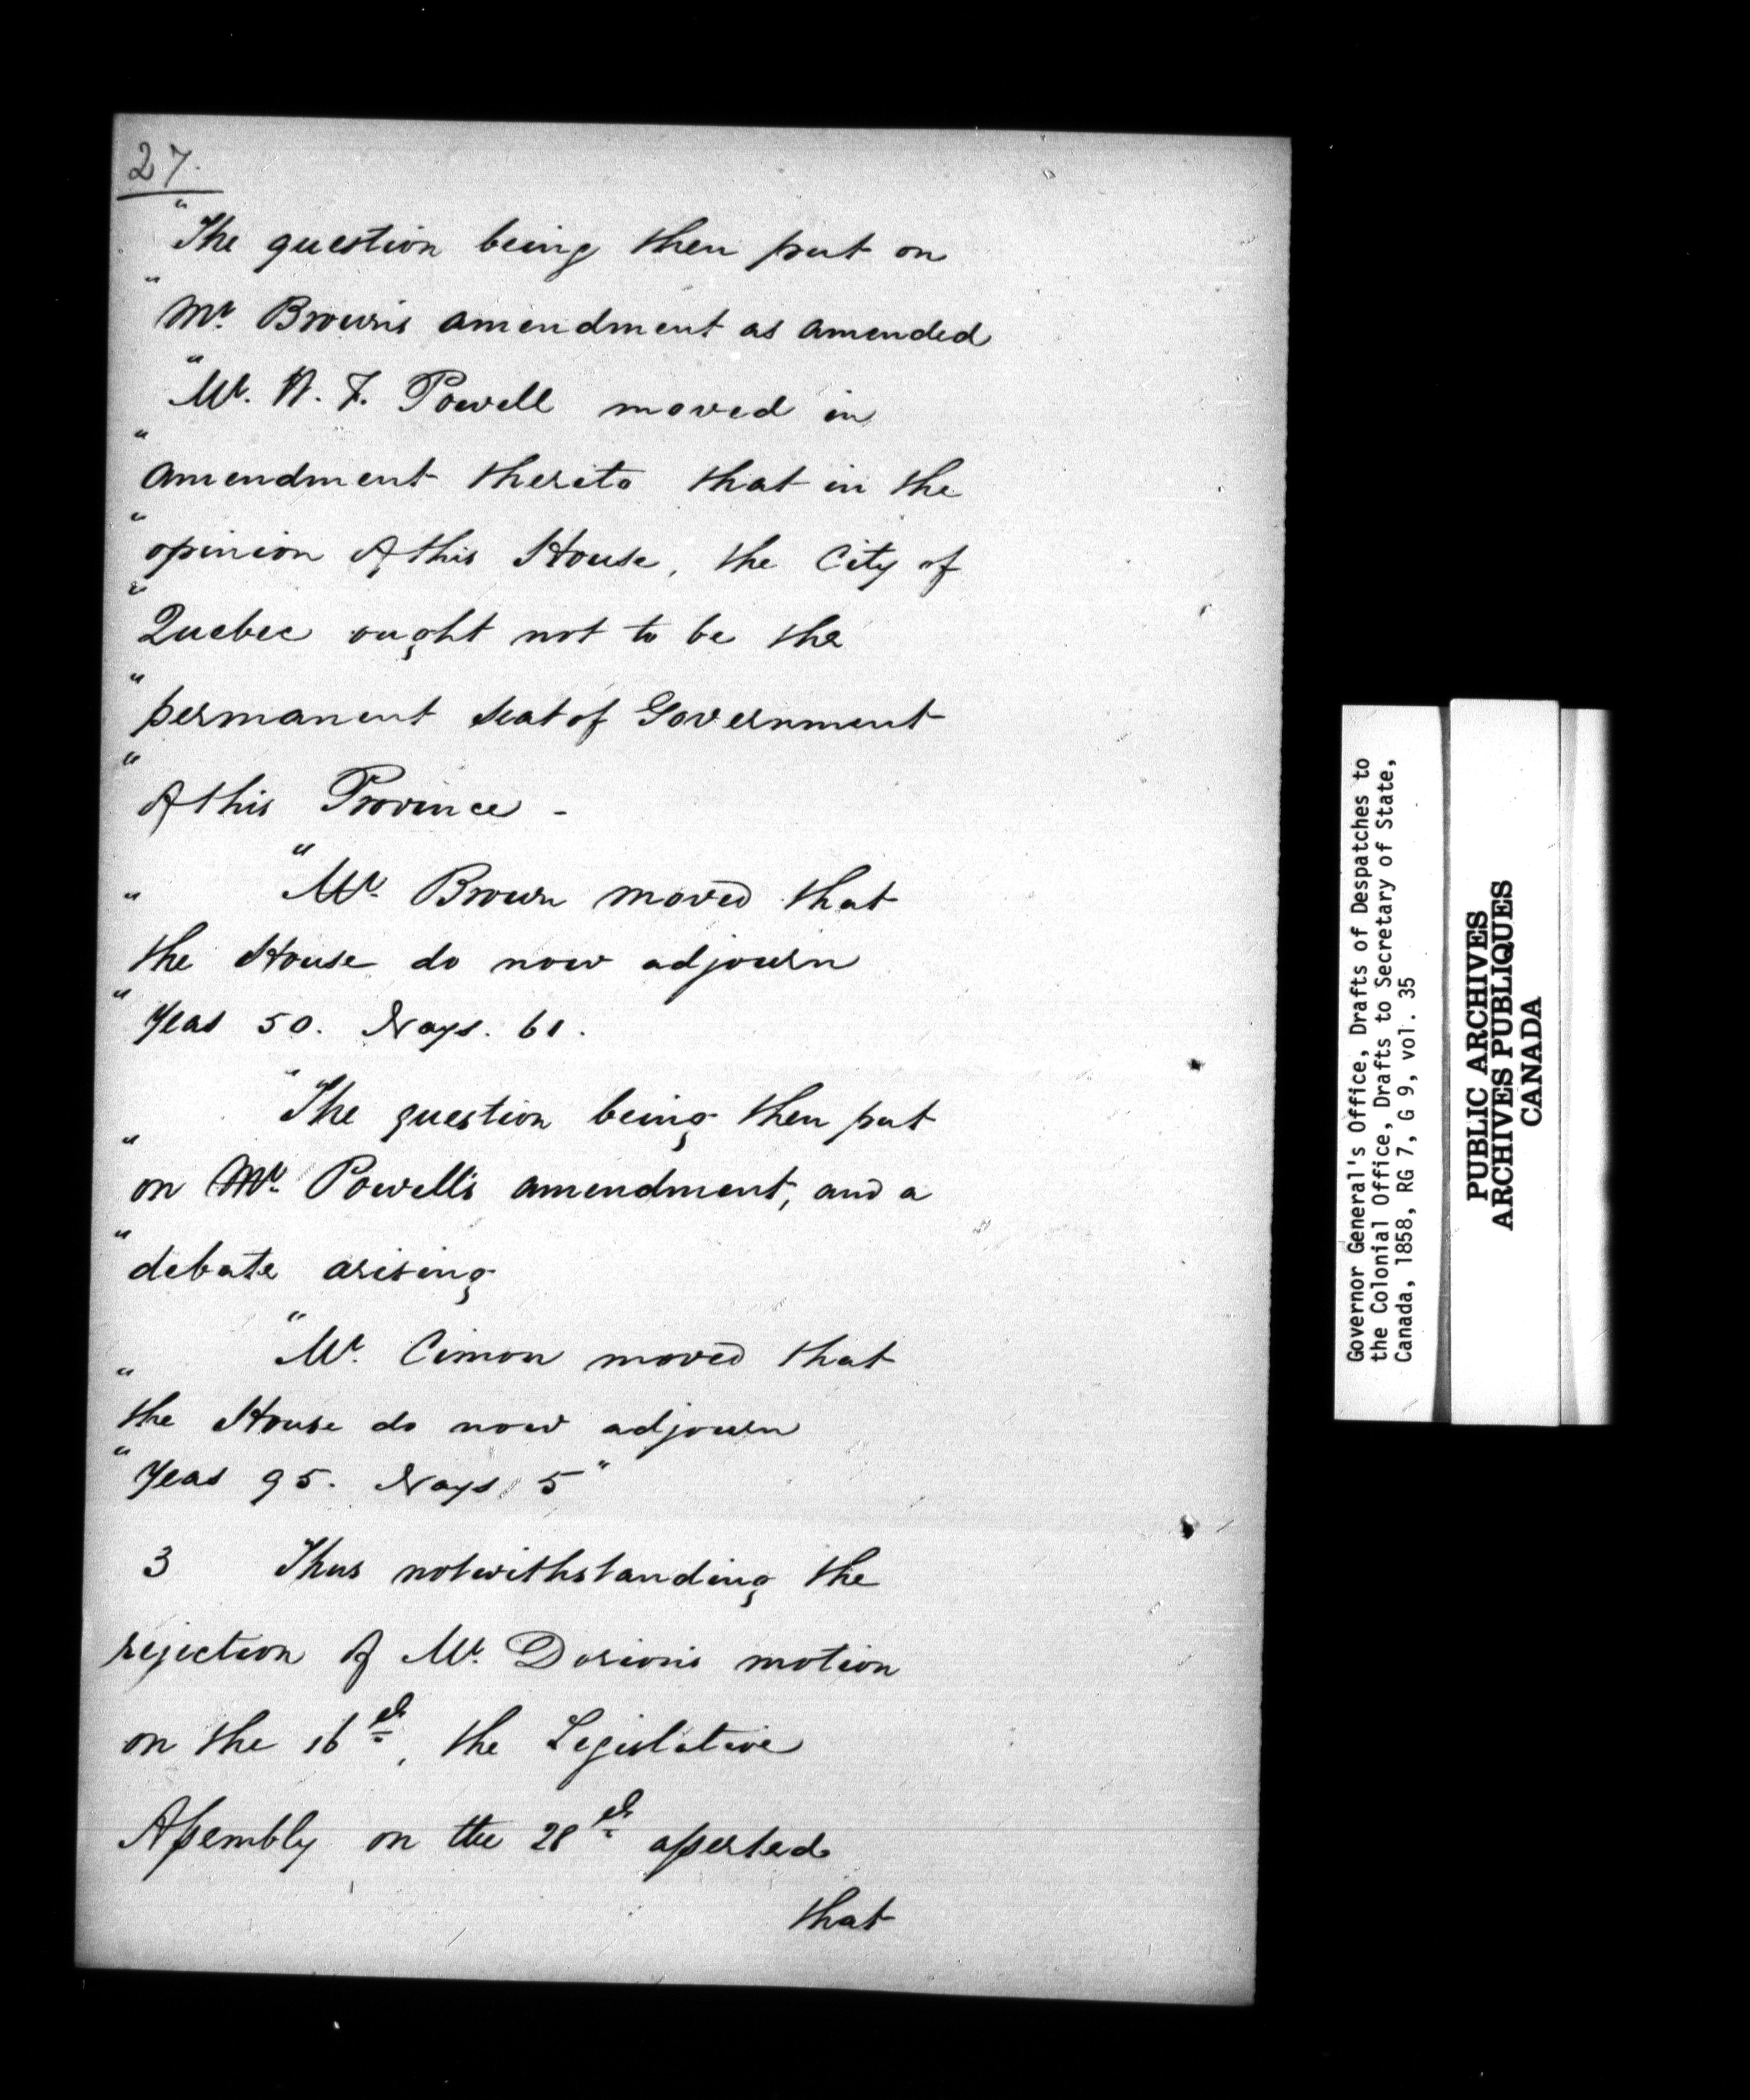 27.
"The question being then put on
"Mr. Brown's amendment as amended
"Mr. W. F. Powell moved in
"amendment thereto that in the
"opinion of this House, the City of
"Quebec ought not to be the
"permanent seat of Government
"of this Province -
" "Mr. Brown moved that
the House do now adjourn
"Yeas 50. Nays. 61.
"The question being then put
"on Mr. Powell's amendment, and a
"debate arising
"Mr. Cimon moved that
"the House do now adjourn
"Yeas 95. Nays 5"
3 Thus notwithstanding the
rejection of Mr. Dorion's motion
on the 16th, the Legislative
Assembly on the 28th asserted
that
Governor General's Office, Drafts of Despatches to
the Colonial Office, Drafts to Secretary of State,
Canada, 1858, RG 7, G 9, vol. 35
PUBLIC ARCHIVES
ARCHIVES PUBLIQUES
CANADA